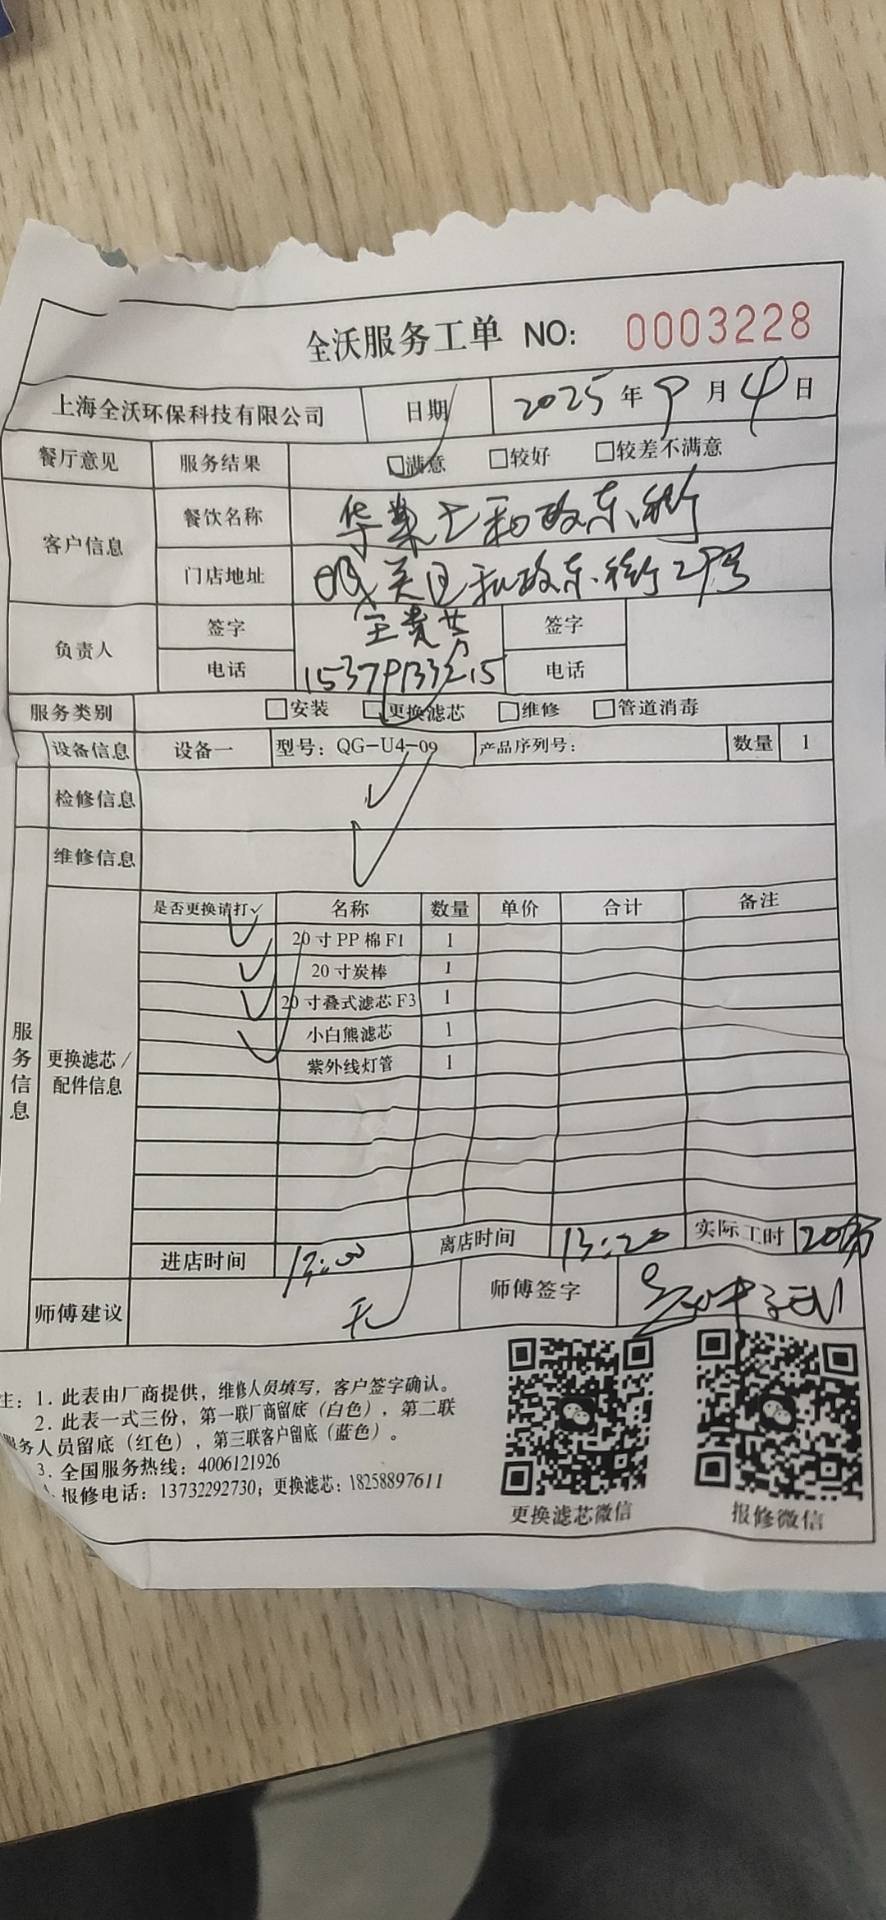 全沃服务工单 NO: 0003228
上海全沃环保科技有限公司 日期 2025年9月4日
餐厅意见 服务结果 □满意 □较好 □较差不满意
客户信息 餐饮名称 华莱士和政东街
门店地址 城关区和政东街29号
负责人 签字 王贵芳 签字
电话 15379133215 电话
服务类别 □安装 □更换滤芯 □维修 □管道消毒
设备信息 设备一 型号: QG-U4-09 产品序列号: 数量 1
服务信息
检修信息
维修信息
更换滤芯/配件信息
是否更换请打✓ 名称 数量 单价 合计 备注
✓ 20寸PP棉F1 1
✓ 20寸炭棒 1
✓ 20寸叠式滤芯F3 1
✓ 小白熊滤芯 1
紫外线灯管 1
进店时间 离店时间 13:20 实际工时 20分
师傅建议 无 师傅签字
注: 1. 此表由厂商提供，维修人员填写，客户签字确认。
2. 此表一式三份，第一联厂商留底（白色），第二联
服务人员留底（红色），第三联客户留底（蓝色）。
3. 全国服务热线: 4006121926
报修电话: 13732292730; 更换滤芯: 18258897611
更换滤芯微信 报修微信